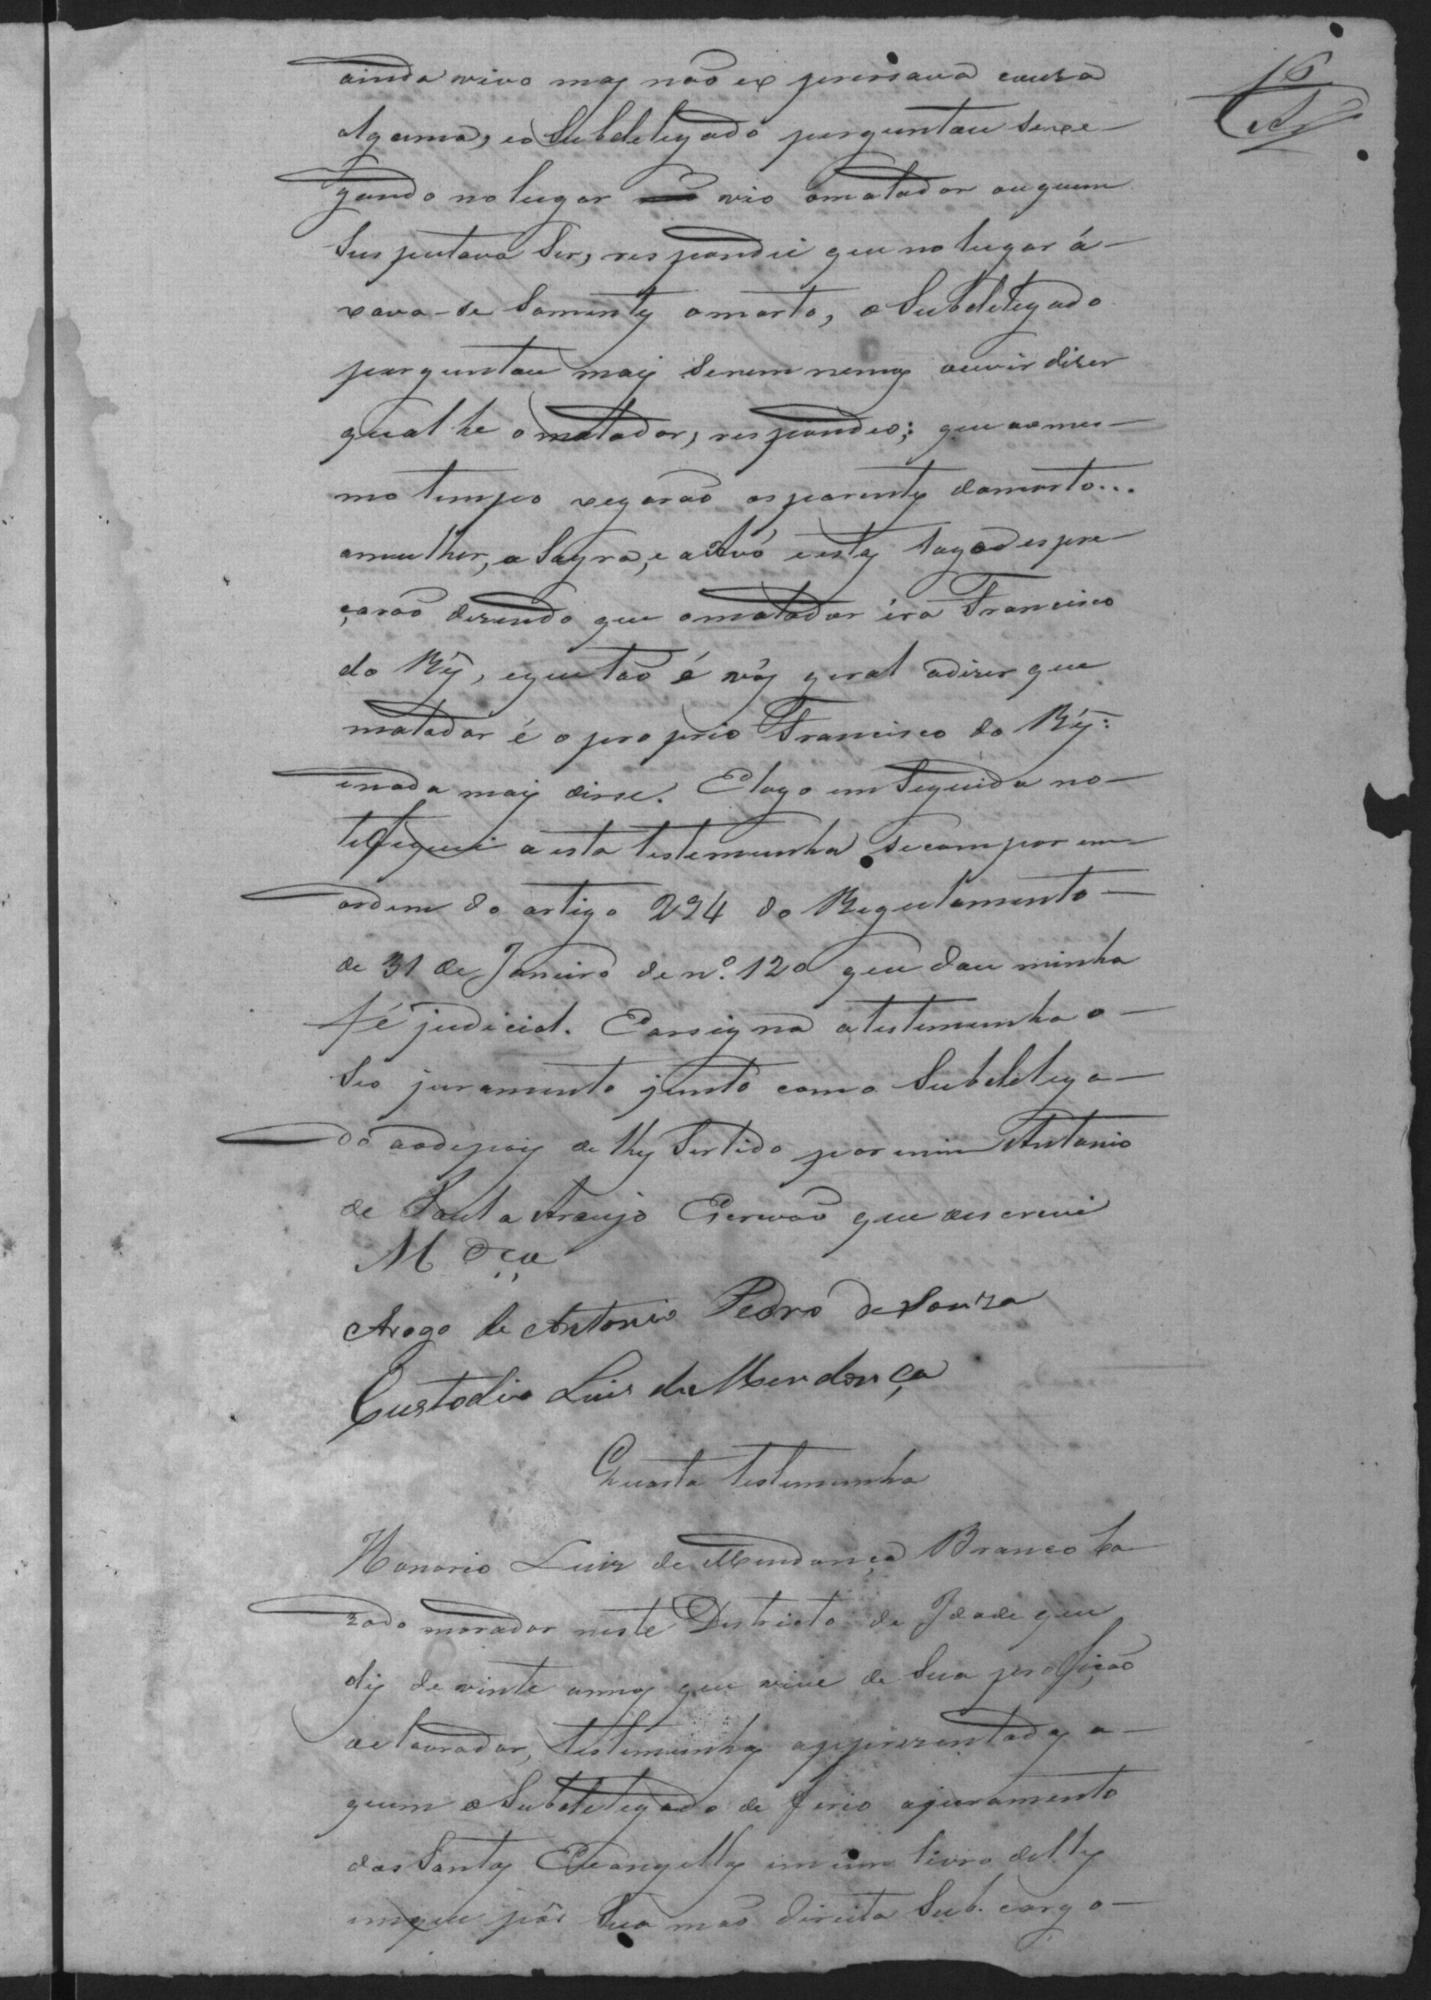 16
ainda vivo mas não expressava couza
alguma, eo Subdelegado perguntou se xe-
gando no lugar vio omatador ouquem
Suspeitava Ser, respondeu que no lugar á-
xava-se Somente omorto, o Subdelegado
perguntou mais Senem menos ouvir diser
qual he omatador, respondeo; que aomes-
mo tempo xegarão os parentes domorto...
amulher, a Sogra, e a Avó e estes logo espre-
çarão disendo que omatador éra Francisco
do Rêj, eque tão é vós geral adiser que
matador é o proprio Francisco do Rêj:
enada mais disse. E logo em Seguida no-
tefiquei a esta testemunha
ordem do artigo 294 do Regulamento
de 31 de Janeiro de nº. 120 que dou minha
fé judicial. E assigna a testemunha o
Seo juramento junto com o Subdelega-
do aodepois de lhes Ser lido por mim Antonio
de Araujo Escrivão que escrevi
M dça
Arogo de Antonio Pedro de Souza
Custodio Luis de Mendonça
Quarta testemunha
Honorio Luiz de Mendonça Branco Ca-
zado morador neste Districto de Idade que
dis de vinte annos que vive de Sua profição
de lavrador, testemunhas apprezentadas a-
quem o Subdelegado deferio ojuramento
dos Santos Evangelhos em um livro delles
emque pôs Sua mão direita Sub. cargo-